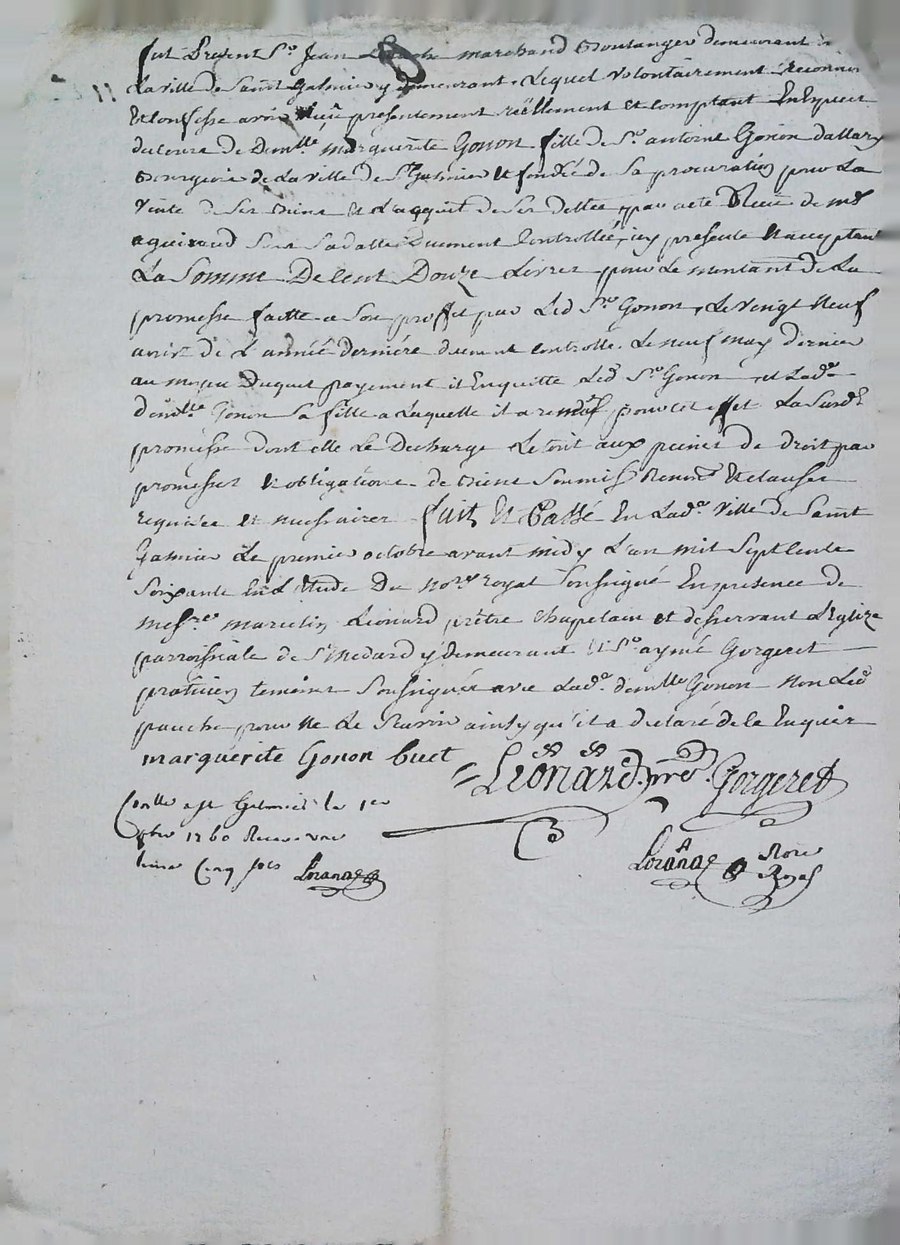 fut Present Sr. Jean marchand Boulanger demeurant
La ville de Saint Galmier y demeurant Lequel volontairement Reconnu
Et Confesse avoir Reçu présentement réëllement et Comptant En Especes
de Demlle. marguerite Gonon fille de Sr. antoine Gonon
Bourgeois de La ville de St. Galmier Et fondée de Sa procuration pour La
Vente de Ses Biens Et L'acquit de Ses Dettes par acte Reçu de me.
Sous Sa datte Duement Controllée, icy presente Et acceptant
La Somme De Cent Douze Livres pour Le montant de La
promesse faitte a Son proffit par Led. Sr. Gonon Le Vingt Neuf
avril de L'année derniére duement Controllé Le neuf may dernier
au moyen Duquel payement il En quitte Led. Sr. Gonon et Lade.
demlle Gonon Sa fille a Laquelle il a remis pour cet effet La Susd.
promesse dont elle Le Decharge Le tout aux peines de droit par
promesses Et obligations de Biens Soumis. Renon. Et Clauses
requises et necessaires fait Et Passé En Lade. Ville de Saint
Galmier Le premier octobre avant midy L'an mil Sept Cents
Soixante En L'Etude Du Nore. royal Soussigné En presence de
messre. marcelin Leonard prêtre Chapelain et desservant L'Eglize
parroissiale de St. Medard y demeurant Et Sr. aymé Gorgeret
praticien temoins Soussignés avec Lade. demlle Gonon Non Led.
pour Ne Le Scavoir ainsy qu'il a declaré de ce Enquis
marguérite Gonon
Leonard. pre. Gorgeret
Conllé a St Galmier le 1er
8bre 1760 Reçu
cinq sols Loranas
Loranas Nore
Royal